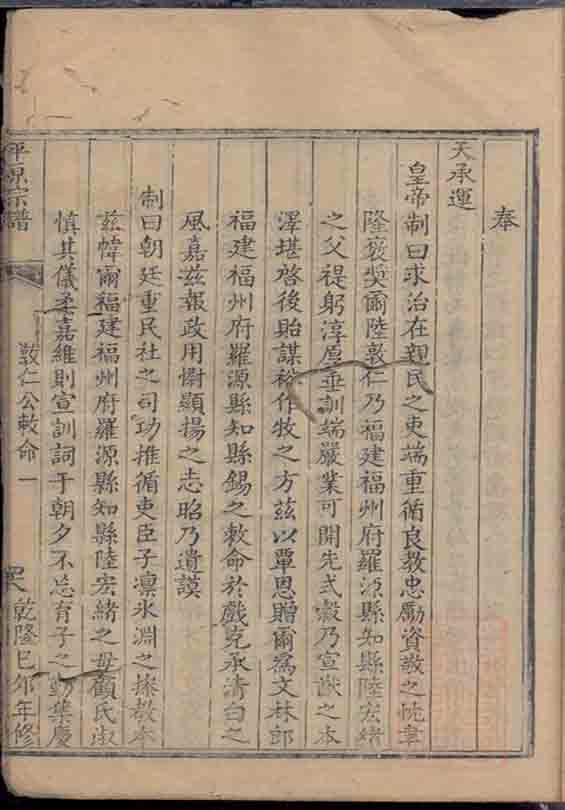 奉
天承運
皇帝制曰求治在親民之吏端重循良教忠勵資敬之忱聿
隆褒奬爾陸敦仁乃福建福州府羅源縣知縣陸宏緒
之父禔躬淳厚垂訓端嚴業可開先式穀乃宣猷之本
澤堪啓後貽謀裕作牧之方茲以覃恩贈爾爲文林郎
福建福州府羅源縣知縣錫之敕命於戲克承清白之
風嘉茲報政用慰顯揚之志昭乃遺謨
制曰朝廷重民社之司功推循吏臣子凛氷淵之操教本
茲幃爾福建福州府羅源縣知縣陸宏緒之母顧氏淑
慎其儀柔嘉維則宣訓詞于朝夕不忘育子之勤集慶
平原宗譜
敦仁公敕命
一
乾隆己卯年修